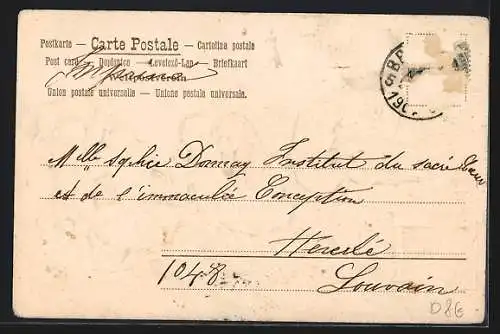 Postkarte – Carte Postale – Cartolina postale
Post card – Dopisnice – Levelező-Lap – Briefkaart
Union postale universelle – Unione postale universale.
Mlle Sophie Damay Institut du sacré Cœur
et de l'immaculée Conception
Herelé
1048
Louvain
086